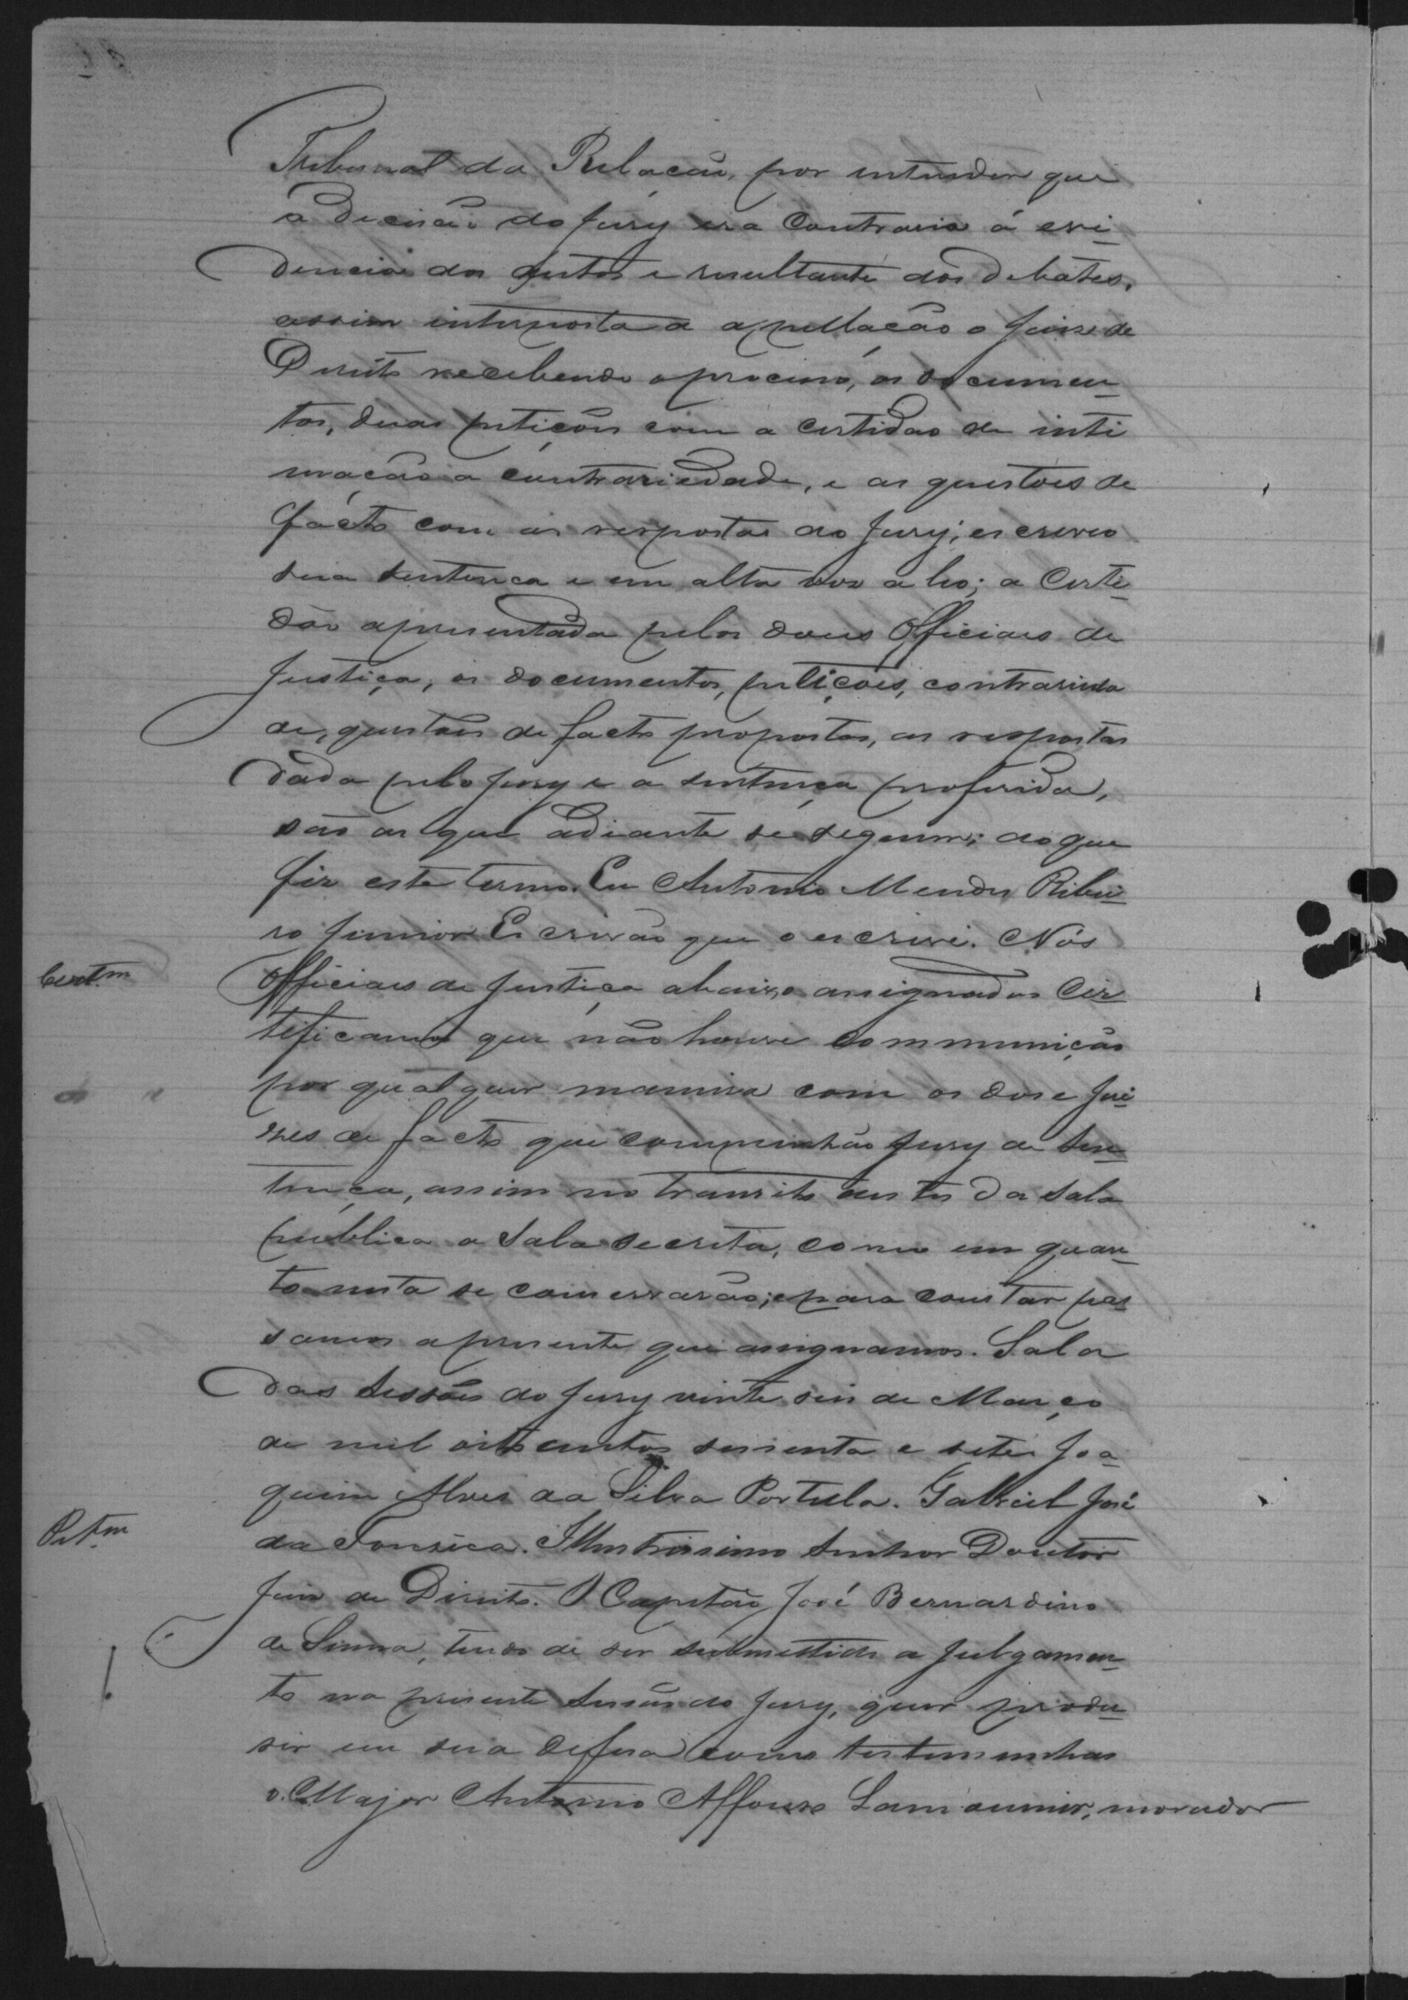 Tribunal da Relação, por entender que
a Decisão do Jury era Contraria á evi-
dencia dos autos e resultante dos debates,
assim interposta a appellação o Juiz de
Direito recebendo o processo, os documen-
tos, duas petições com a certidão de inti
mação a contrariedade, e as questões de
facto com as respostas do Jury; escreveo
sua sentença e em alta voz a leo; a Certi-
dão apresentada pelos dous Officiaes de
Justiça, os documentos, petições, contrarieda
de, questões de facto propostas, as respostas
dada pelo Jury e a sentença proferida,
são as que adiante se seguem; do que
fiz este termo. Eu Antonio Mendes Ribei-
ro Junior Escrivão que o escrevi. Nós
Certm
Officiaes de Justiça abaixo assignados Cer
tificamos que não houve communicação
por qualquer maneira com os dose Jui-
zes de facto que compunhão Jury de Sen-
tença, assim no transito destes da Sala
publica a Sala secreta, como em quan-
to nesta se conservarão; e para constar pas
samos a presente que assignamos. Sala
das Sessões do Jury vinte seis de Março
de mil oitocentos sessenta e sete. Joa-
quim Alves da Silva Portela. Gabriel José
Petm
da Fonseca. Illustrissimo Senhor Doutor
Juiz de Direito. O Capitão José Bernardino
de Senna, tendo de ser submettido a julgamen-
to na presente Sessão do Jury, quer produ-
sir em sua defesa como testemunhas
o Major Antonio Affonso Lamounier, morador